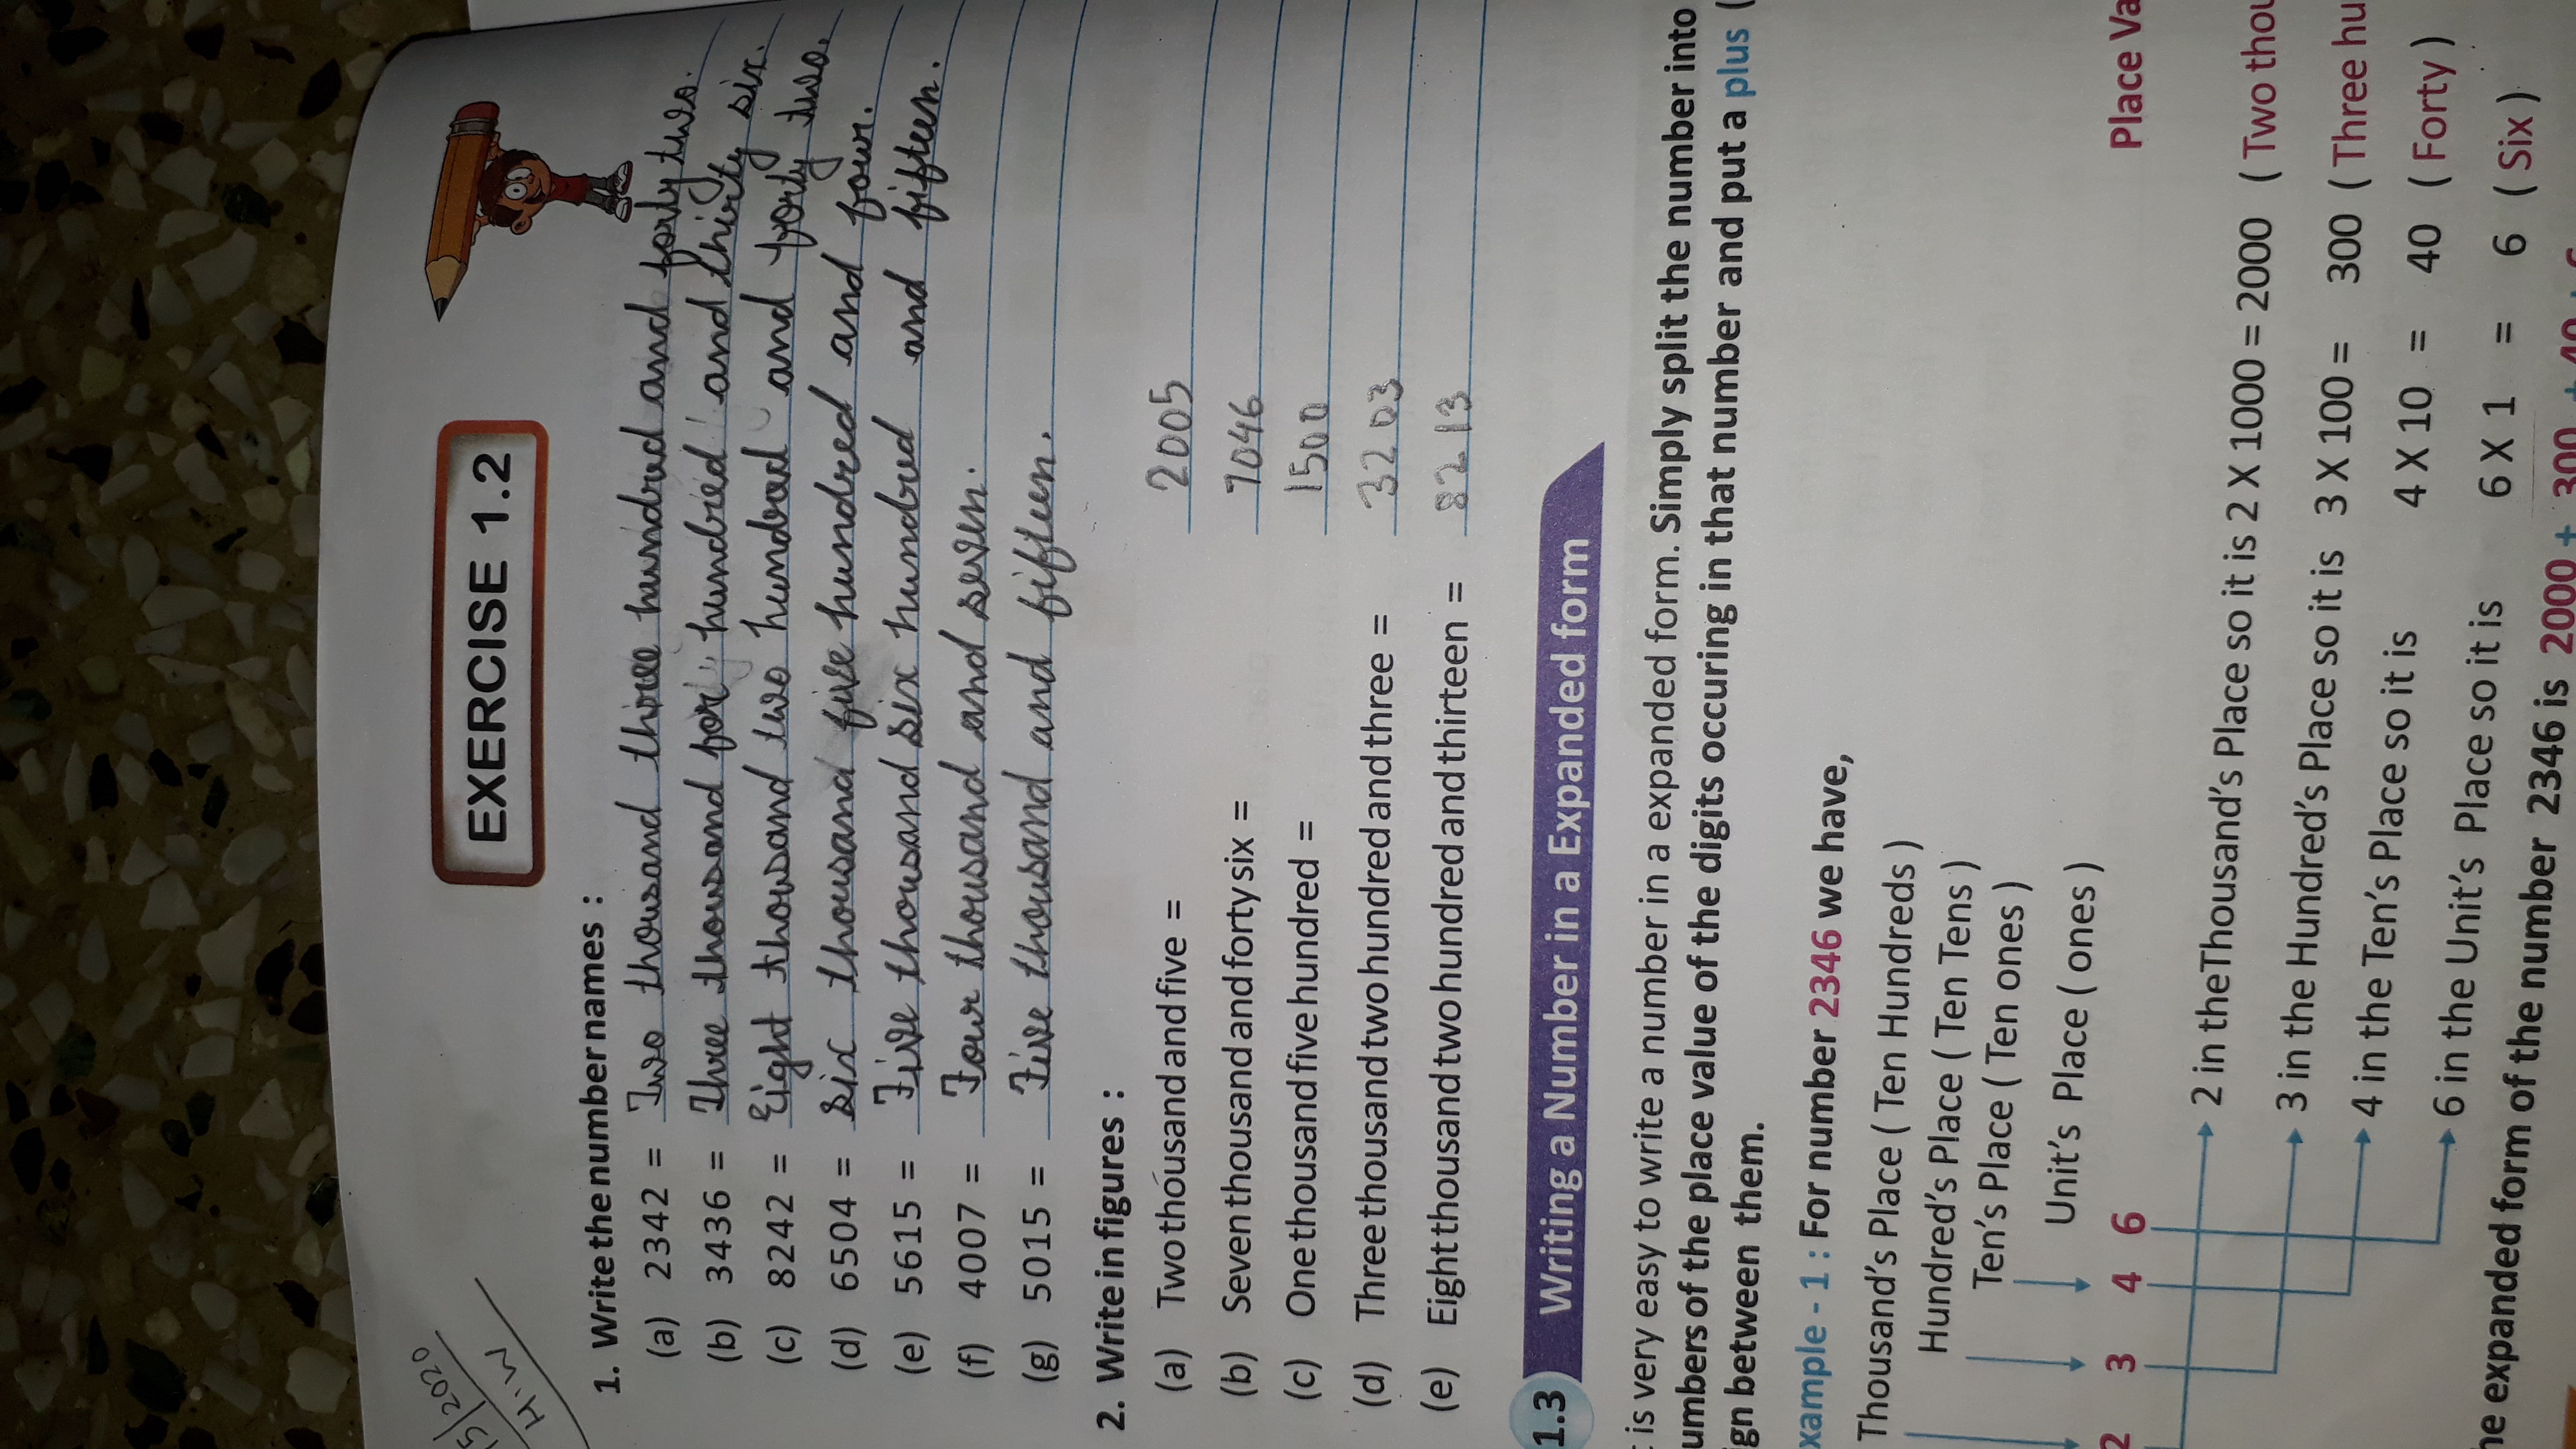 15/2020
H.W
EXERCISE 1.2
1. Write the number names :
(a) 2342 = Two thousand three hundred and forty two.
(b) 3436 = Three thousand for hundred and thirty six.
(c) 8242 = Eight thousand two hundred and forty two.
(d) 6504 = six thousand five hundred and four.
(e) 5615 = Five thousand six hundred and fifteen.
(f) 4007 = Four thousand and seven.
(g) 5015 = Five thousand and fifteen.
2. Write in figures :
(a) Two thousand and five = 2005
(b) Seven thousand and forty six = 7046
(c) One thousand five hundred = 1500
(d) Three thousand two hundred and three = 3203
(e) Eight thousand two hundred and thirteen = 8213
1.3 Writing a Number in a Expanded form
t is very easy to write a number in a expanded form. Simply split the number into
umbers of the place value of the digits occuring in that number and put a plus (
ign between them.
xample - 1 : For number 2346 we have,
Thousand's Place ( Ten Hundreds )
Hundred's Place ( Ten Tens )
Ten's Place ( Ten ones )
Unit's Place ( ones )
2 3 4 6
Place Va
2 in theThousand's Place so it is 2 X 1000 = 2000 ( Two thou
3 in the Hundred's Place so it is 3 X 100 = 300 ( Three hu
4 in the Ten's Place so it is 4 X 10 = 40 ( Forty )
6 in the Unit's Place so it is 6 X 1 = 6 ( Six )
he expanded form of the number 2346 is 2000 + 300 + 40 + 6